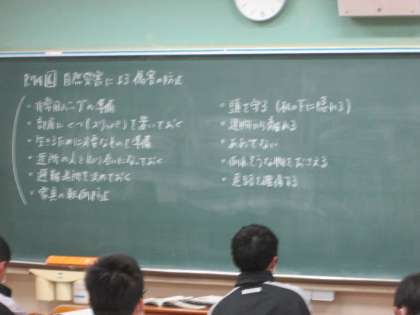 自然災害による傷害の防止
・非常用の準備
・部屋にくつ(スリッパ)を置いておく
・生きるために必要なものを準備
・近所の人と知り合いになっておく
・避難場所を決めておく
・家具の転倒防止
・頭を守る(机の下に隠れる)
・建物から離れる
・あわてない
・倒れそうな物をおさえる
・通路を確保する